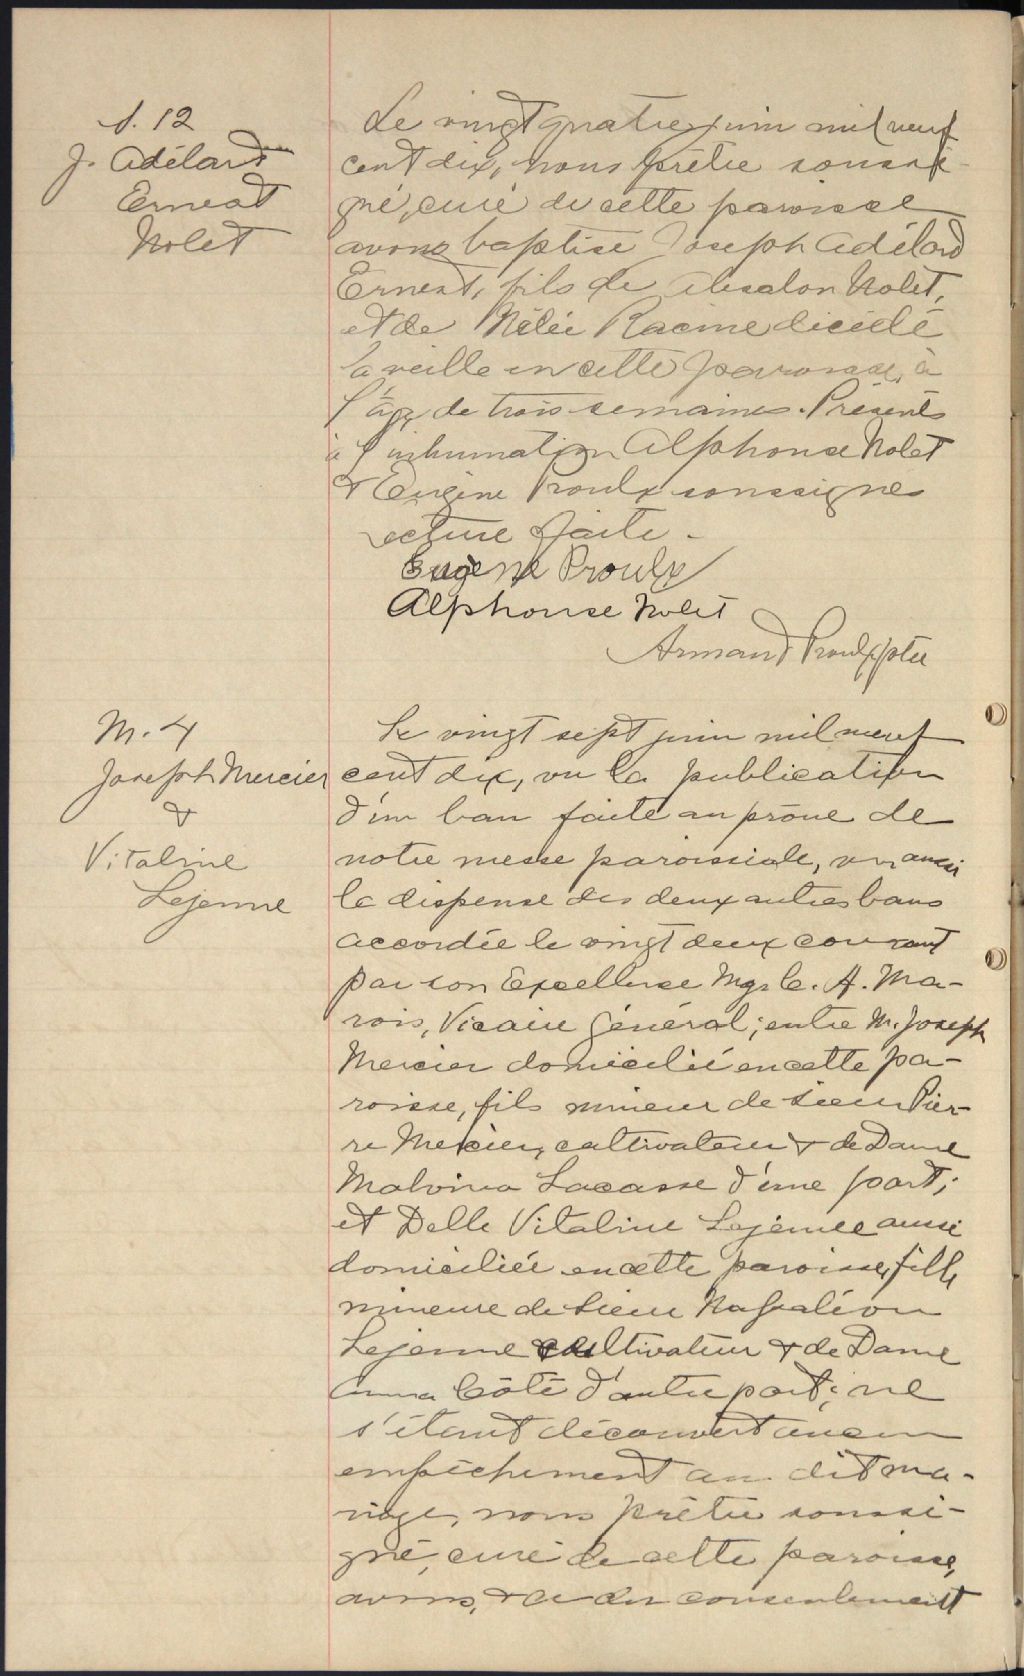 S. 12
J. Adélard
Ernest
Nolet
Le vingt quatre juin mil neuf
cent dix, nous prêtre soussi-
gné, curé de cette paroisse
avons baptisé Joseph Adélard
Ernest, fils de Absalon Nolet,
et de Mélée Racine décédé
la veille en cette paroisse, à
l'âge de trois semaines. Présents
à l'inhumation Alphonse Nolet
& Eugène Proulx soussignés
Lecture faite -
Eugène Proulx
Alphonse Nolet
Armand Proulx ptre
M. 4
Joseph Mercier
&
Vitaline
Lejeune
Le vingt sept juin mil neuf
cent dix, vu la publication
d'un ban faite au prône de
notre messe paroissiale, vu aussi
la dispense des deux autres bans
accordée le vingt deux courant
par son Excellence Mgr C. A. Ma-
rois, Vicaire Général; entre M. Joseph
Mercier domicilié en cette pa-
roisse, fils mineur de sieur Pier-
re Mercier, cultivateur & de Dame
Malvina Lacasse d'une part;
et Delle Vitaline Lejeune aussi
domiciliée en cette paroisse, fille
mineure de sieur Napoléon
Lejeune cultivateur & de Dame
Anna Côté d'autre part; ne
s'étant découvert aucun
empêchement au dit ma-
riage, nous prêtre soussi-
gné, curé de cette paroisse,
avons, consentement